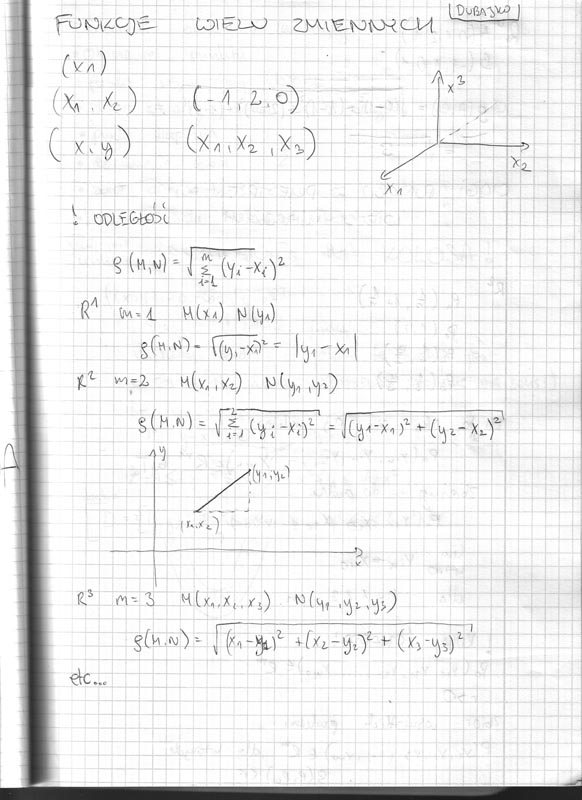 FUNKCJE WIELU ZMIENNYCH
(x1)
(x1, x2) (-1, 2, 0)
(x, y) (x1, x2, x3)
x3
x2
x1
! ODLEGŁOŚĆ
ρ(M,N) = √(m Σ i=1 (yi-xi)²
R¹ m=1 M(x1) N(y1)
ρ(M,N) = √(y1-x1)² = |y1 - x1|
R² m=2 M(x1, x2) N(y1, y2)
ρ(M.N) = √2 Σ i=1 (yi-xi)² = √(y1-x1)² + (y2-x2)²
y
(y1, y2)
(x1, x2)
x
R³ m=3 M(x1, x2, x3) N(y1, y2, y3)
ρ(M.N) = √(x1-y1)² + (x2-y2)² + (x3-y3)²
etc...